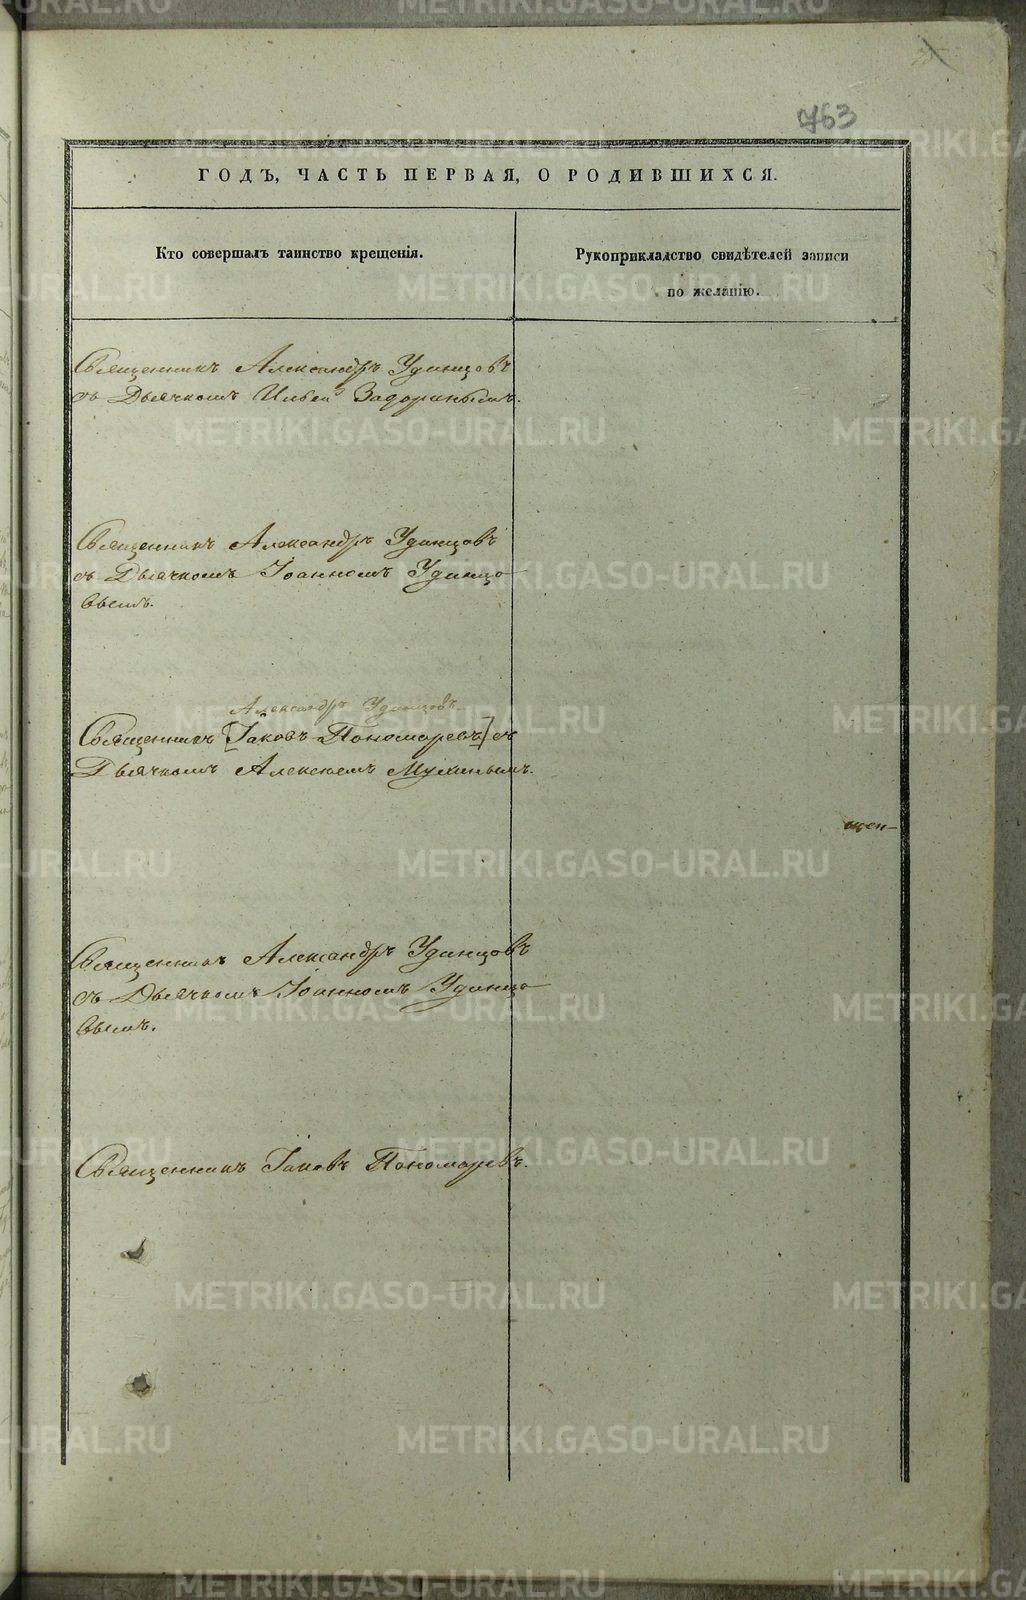 763
ГОДЪ, ЧАСТЬ ПЕРВАЯ, О РОДИВШИХСЯ.
Кто совершалъ таинство крещенія.
Рукоприкладство свидѣтелей записи
по желанію.
Священникъ Александръ Удинцовъ
съ Дьячкомъ Ильей Задоринымъ.
Священникъ Александръ Удинцовъ
съ Дьячкомъ Іоанномъ Удинцо
вымъ.
Александръ Удинцовъ
Священникъ [Іаковъ Пономаревъ] съ
Дьячкомъ Алексіемъ Мухинымъ.
щен-
Священникъ Александръ Удинцовъ
съ Дьячкомъ Іоанномъ Удинцо
вымъ.
Священникъ Іаковъ Пономаревъ.
METRIKI.GASO-URAL.RU